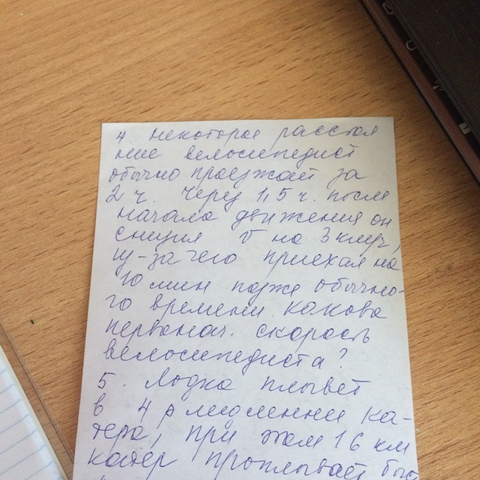 4. Некоторое расстоя
ние велосипедист
обычно проезжает за
2 ч. Через 1,5 ч. после
начала движения он
снизил V на 3 км/ч,
из-за чего приехал на
10 мин позже обычно-
го времени. Какова
первонач. скорость
велосипедиста?
5. Лодка плывет
в 4 р медленнее ка-
тера, при этом 16 км
катер проплывает